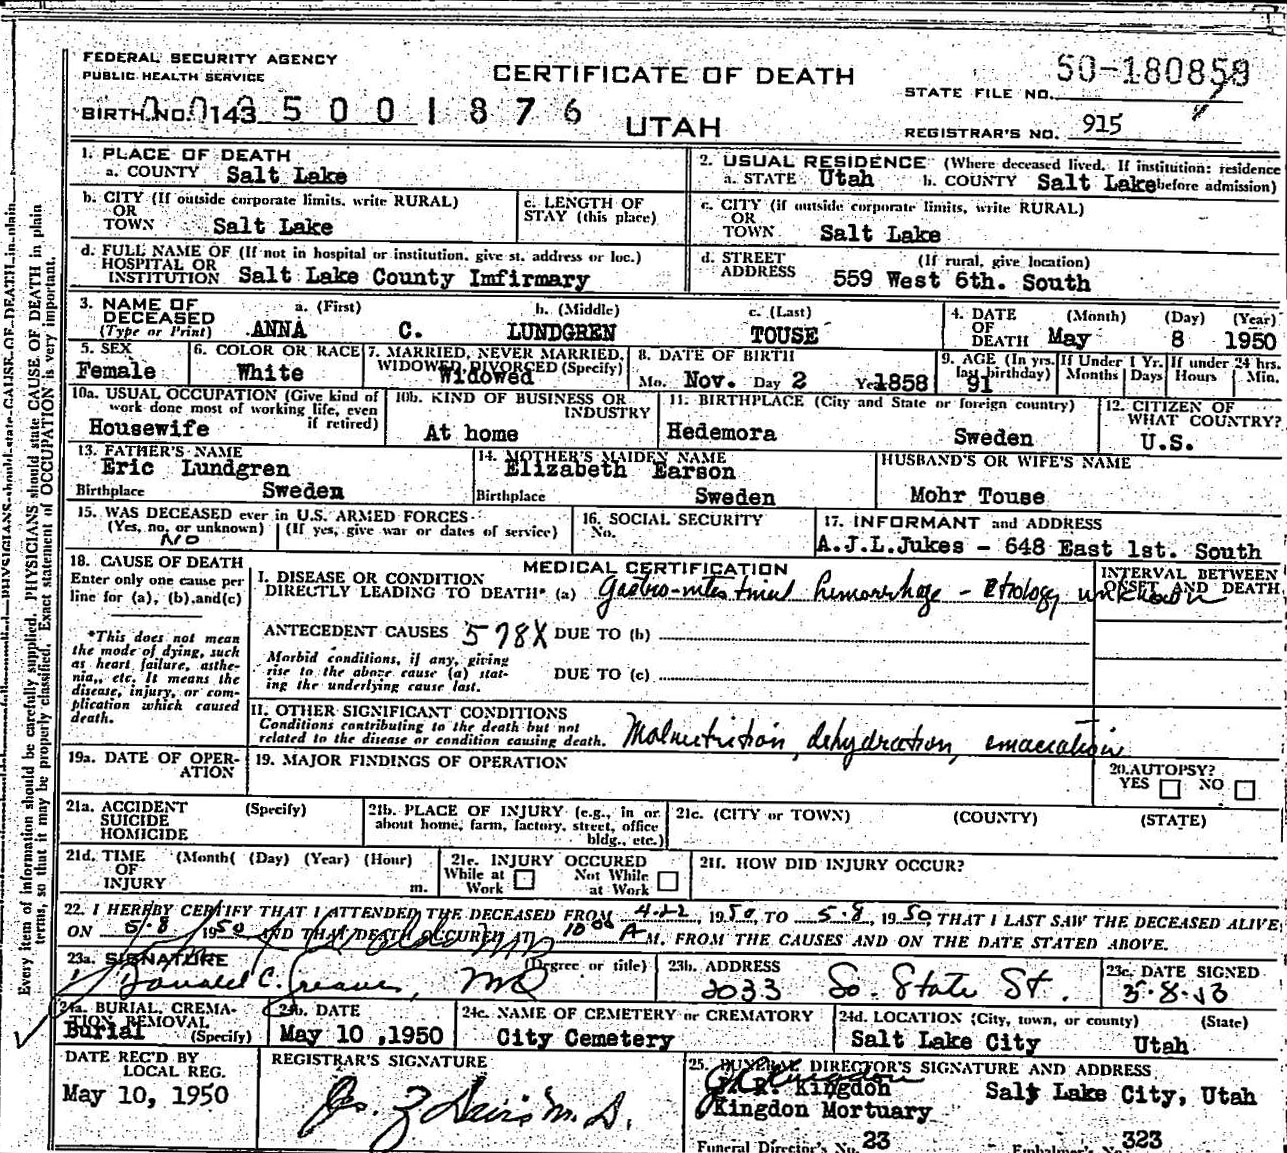 FEDERAL SECURITY AGENCY
PUBLIC HEALTH SERVICE
CERTIFICATE OF DEATH
50-180858
STATE FILE NO.
BIRTH NO. 0143 5 0 0 1 8 7 6
UTAH
REGISTRAR'S NO. 915
1. PLACE OF DEATH
a. COUNTY Salt Lake
2. USUAL RESIDENCE (Where deceased lived. If institution: residence
a. STATE Utah b. COUNTY Salt Lake before admission)
b. CITY (If outside corporate limits, write RURAL)
OR
TOWN Salt Lake
c. LENGTH OF
STAY (this place)
c. CITY (if outside corporate limits, write RURAL)
OR
TOWN Salt Lake
d. FULL NAME OF (If not in hospital or institution, give st. address or loc.)
HOSPITAL OR
INSTITUTION Salt Lake County Imfirmary
d. STREET (If rural, give location)
ADDRESS 559 West 6th. South
3. NAME OF a. (First) b. (Middle) c. (Last)
DECEASED
(Type or Print) ANNA C. LUNDGREN TOUSE
4. DATE (Month) (Day) (Year)
OF
DEATH May 8 1950
5. SEX
Female
6. COLOR OR RACE
White
7. MARRIED, NEVER MARRIED,
WIDOWED, DIVORCED (Specify)
Widowed
8. DATE OF BIRTH
Mo. Nov. Day 2 Yr. 1858
9. AGE (In yrs.
last birthday)
91
If Under 1 Yr.
Months Days
If under 24 hrs.
Hours Min.
10a. USUAL OCCUPATION (Give kind of
work done most of working life, even
if retired)
Housewife
10b. KIND OF BUSINESS OR
INDUSTRY
At home
11. BIRTHPLACE (City and State or foreign country)
Hedemora Sweden
12. CITIZEN OF
WHAT COUNTRY?
U.S.
13. FATHER'S NAME
Eric Lundgren
Birthplace Sweden
14. MOTHER'S MAIDEN NAME
Elizabeth Earson
Birthplace Sweden
HUSBAND'S OR WIFE'S NAME
Mohr Touse
15. WAS DECEASED ever in U.S. ARMED FORCES
(Yes, no, or unknown) (If yes, give war or dates of service)
NO
16. SOCIAL SECURITY
No.
17. INFORMANT and ADDRESS
A.J.L.Jukes - 648 East 1st. South
18. CAUSE OF DEATH
Enter only one cause per
line for (a), (b), and (c)
*This does not mean
the mode of dying, such
as heart failure, asthe-
nia, etc. It means the
disease, injury, or com-
plication which caused
death.
MEDICAL CERTIFICATION
I. DISEASE OR CONDITION
DIRECTLY LEADING TO DEATH* (a) Gastro-intestinal hemorrhage - Etiology unknown
INTERVAL BETWEEN
ONSET AND DEATH
ANTECEDENT CAUSES 578X DUE TO (b)
Morbid conditions, if any, giving
rise to the above cause (a) stat-
ing the underlying cause last.
DUE TO (c)
II. OTHER SIGNIFICANT CONDITIONS
Conditions contributing to the death but not
related to the disease or condition causing death. Malnutrition, dehydration, emaciation
19a. DATE OF OPER-
ATION
19. MAJOR FINDINGS OF OPERATION
20. AUTOPSY?
YES NO
21a. ACCIDENT (Specify)
SUICIDE
HOMICIDE
21b. PLACE OF INJURY (e.g., in or
about home, farm, factory, street, office
bldg., etc.)
21c. (CITY or TOWN) (COUNTY) (STATE)
21d. TIME (Month( (Day) (Year) (Hour)
OF
INJURY m.
21e. INJURY OCCURED
While at Not While
Work at Work
21f. HOW DID INJURY OCCUR?
22. I HEREBY CERTIFY THAT I ATTENDED THE DECEASED FROM 4-22, 1950, TO 5-8, 1950 THAT I LAST SAW THE DECEASED ALIVE
ON 5-8 1950 AND THAT DEATH OCCURED AT 10 00 A M. FROM THE CAUSES AND ON THE DATE STATED ABOVE.
23a. SIGNATURE (Degree or title)
Donald C. MD
23b. ADDRESS
2033 So. State St.
23c. DATE SIGNED
24a. BURIAL, CREMA-
TION REMOVAL
(Specify)
Burial
24b. DATE
May 10 ,1950
24c. NAME OF CEMETERY or CREMATORY
City Cemetery
24d. LOCATION (City, town, or county) (State)
Salt Lake City Utah
DATE REC'D BY
LOCAL REG.
May 10, 1950
REGISTRAR'S SIGNATURE
M.D.
25. FUNERAL DIRECTOR'S SIGNATURE AND ADDRESS
Kingdon Salt Lake City, Utah
Kingdon Mortuary
Funeral Director's No. 23 Embalmer's No. 323
Every item of information should be carefully supplied. PHYSICIANS should state CAUSE OF DEATH in plain
terms, so that it may be properly classified. Exact statement of OCCUPATION is very important.